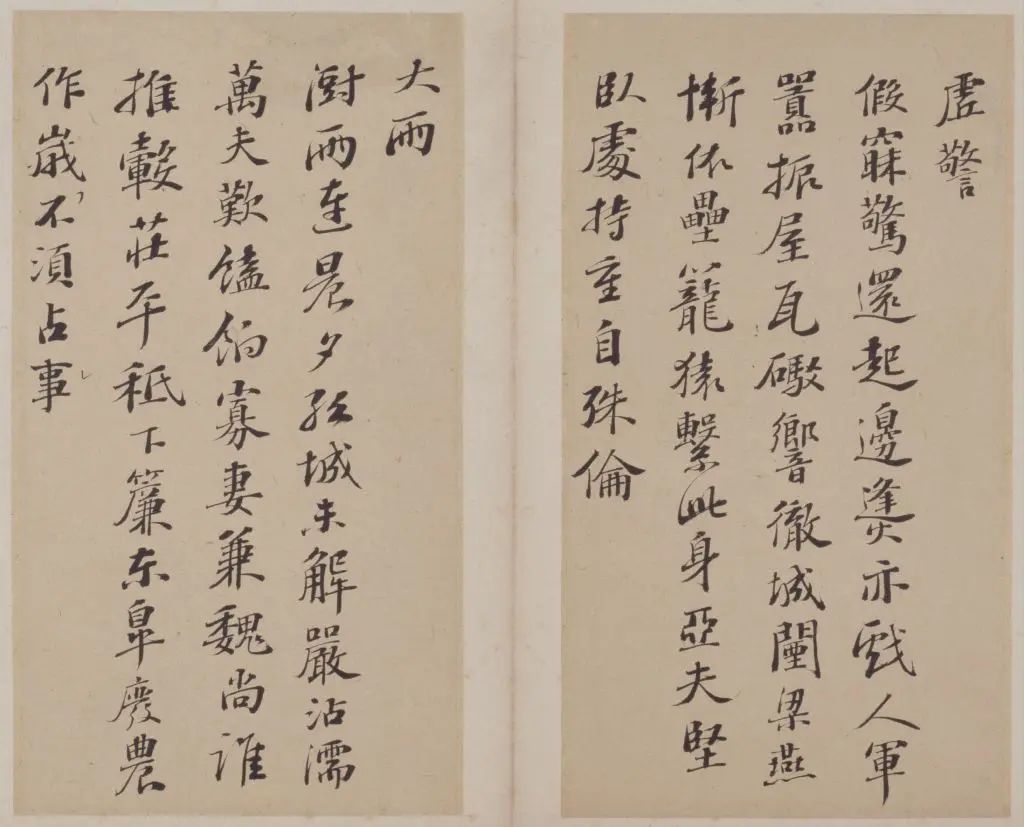 虛警
假寐驚還起邊熢亦戲人軍
囂振屋瓦礮響徹城闉梁燕
慚依壘籠猿繫此身亞夫堅
臥處持重自殊倫
大雨
澍雨連晨夕孤城未解嚴沾濡
萬夫歎饁餉寡妻兼魏尚誰
推轂莊平秪下簾東皐廢農
作歲不須占事